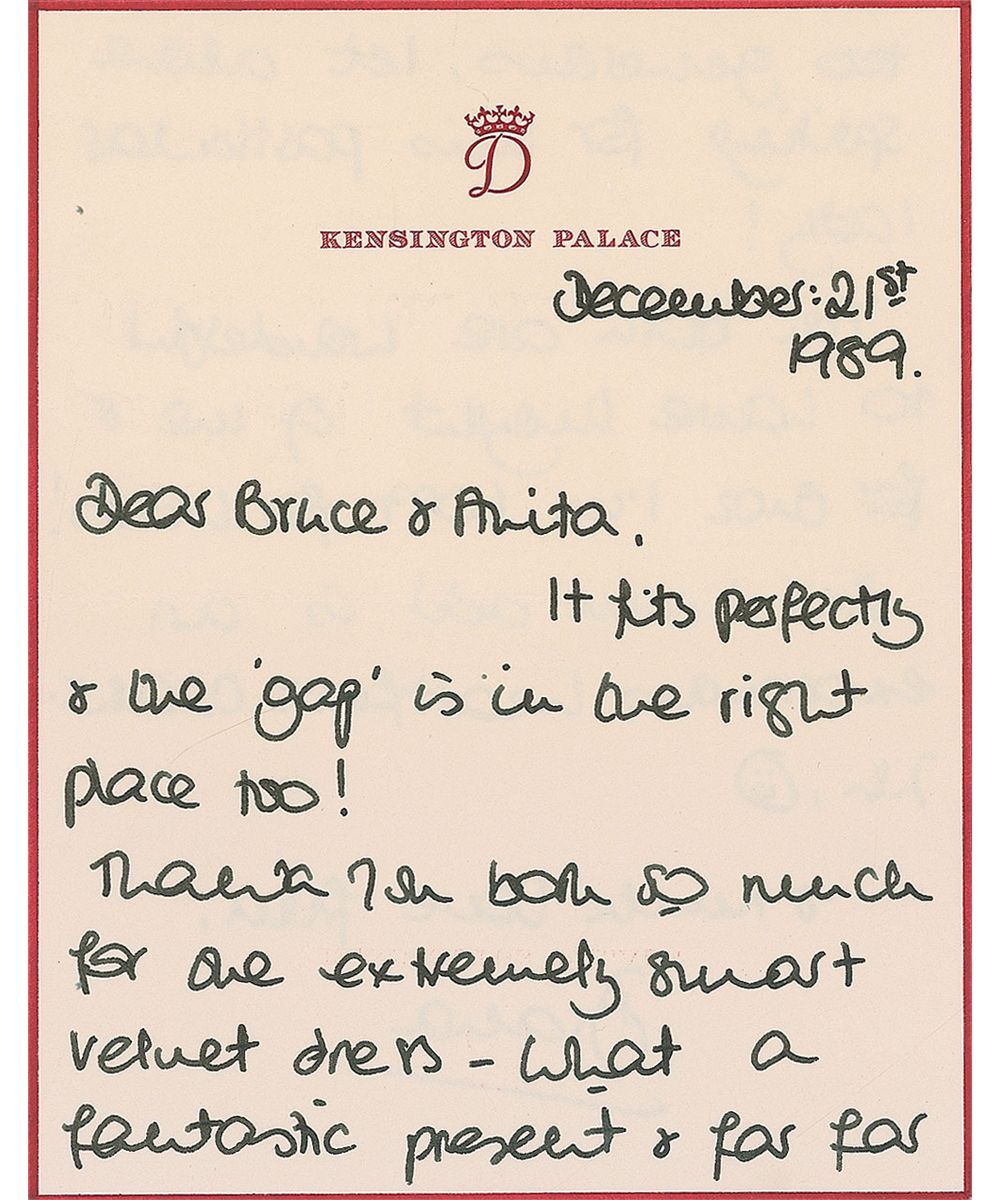 D
KENSINGTON PALACE
December: 21st
1989.
Dear Bruce & Anita,
It fits perfectly
& the 'gap' is in the right
place too!
Thank you both so much
for the extremely smart
velvet dress - what a
fantastic present & far far